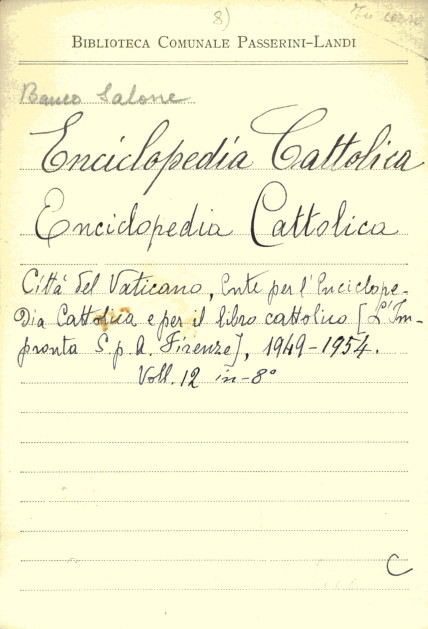 8)
In corso
BIBLIOTECA COMUNALE PASSERINI-LANDI
Banco Salone
Enciclopedia Cattolica
Enciclopedia Cattolica
Città del Vaticano, Ente per l'Enciclope-
dia Cattolica e per il libro cattolico [L'Im-
pronta S.p.A. Firenze], 1949-1954.
Voll. 12 in-8°
C